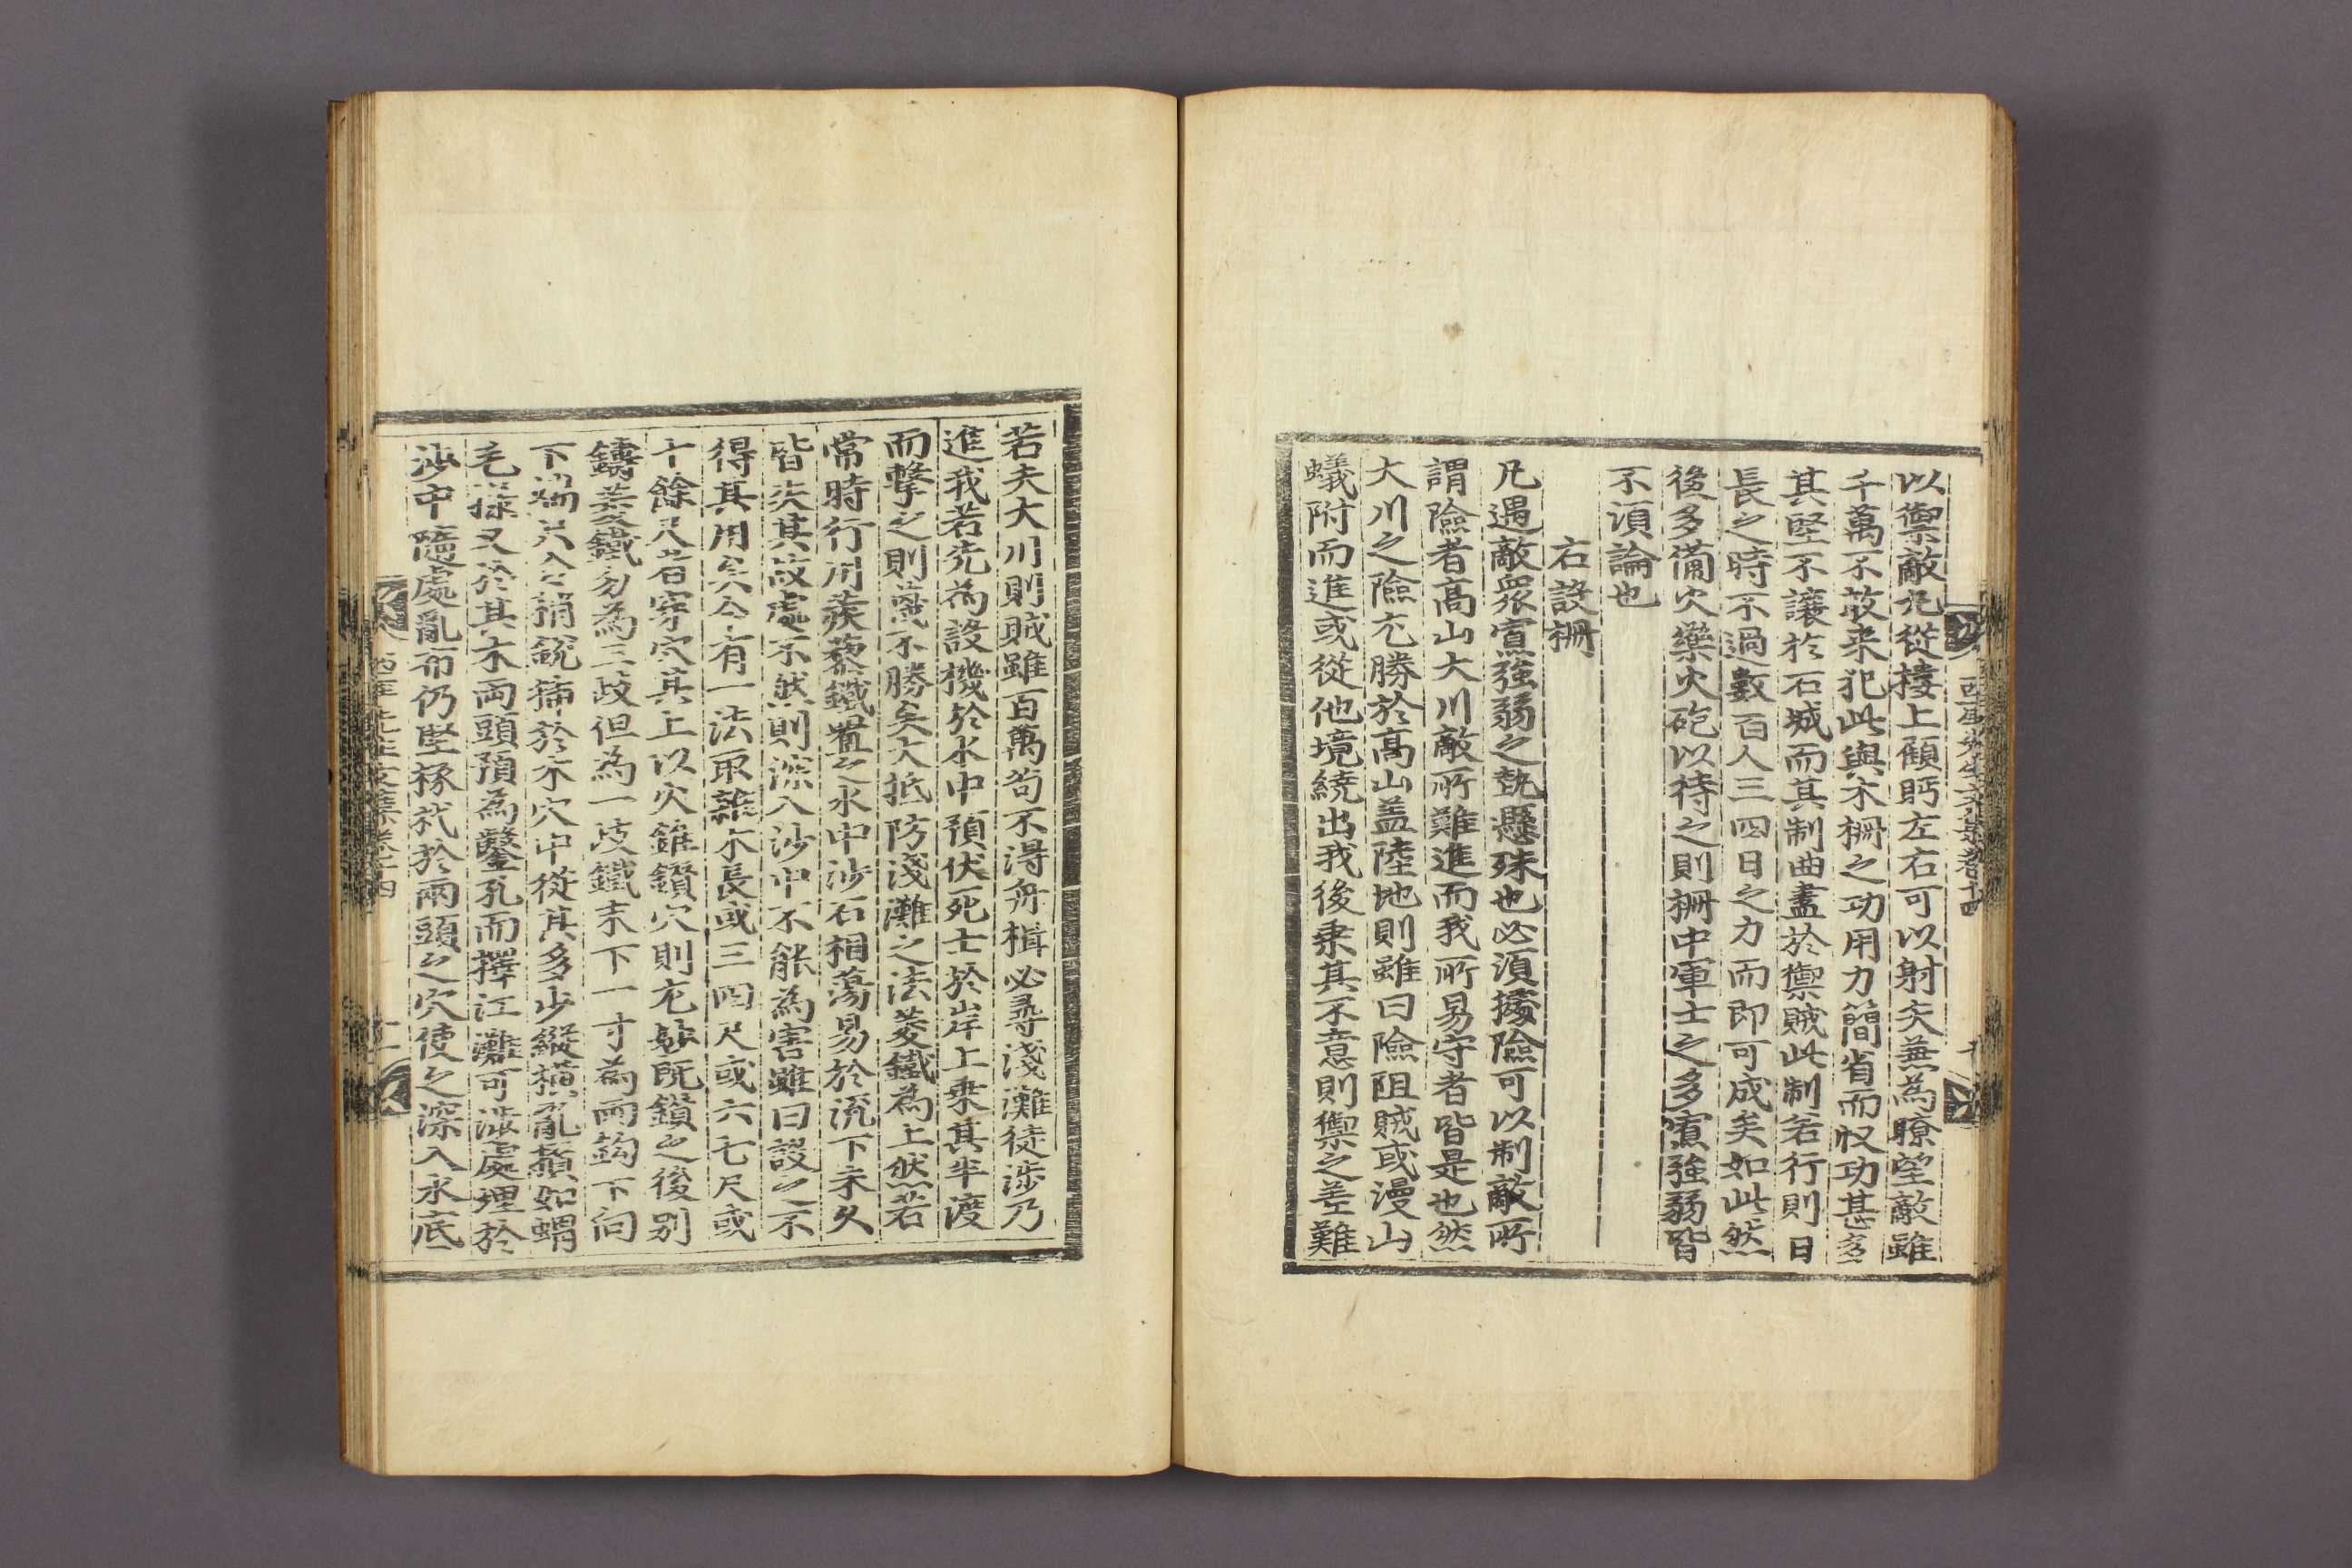 以禦敵凡從樓上顧眄左右可以射矢兼為瞭望敵雖
千萬不敢来犯此與木柵之功用力簡省而收功甚多
其堅不讓於石城而其制曲盡於禦賊此制若行則日
長之時不過數百人三四日之力而即可成矣如此然
後多備火藥火砲以待之則柵中軍士之多寡強弱皆
不須論也
右設柵
凡遇敵衆寡強弱之勢懸殊也必須據險可以制敵所
謂險者高山大川敵所難進而我所易守者皆是也然
大川之險尤勝於高山盖陸地則雖曰險阻賊或漫山
蟻附而進或從他境繞出我後乗其不意則禦之差難
西厓先生文集卷之十四
若夫大川則賊雖百萬苟不得舟楫必尋淺灘徒涉乃
進我若先為設機於水中預伏死士於岸上乗其半渡
而擊之則蔑不勝矣大抵防淺灘之法菱鐵為上然若
常時行用蒺藜鐵置之水中沙石相蕩易於流下未久
皆失其故處不然則深入沙中不能為害雖曰設之不
得其用矣今有一法取雜木長或三四尺或六七尺或
十餘尺皆穿穴其上以火錐鑽穴則尤妙既鑽之後別
鑄菱鐵勿為三歧但為一歧鐵末下一寸為兩鉤下向
下端尖入稍銳揷於木穴中從其多少縱橫亂鬚如蝟
毛㨾又於其木兩頭預為鑿孔而擇江灘可涉處埋於
沙中隨處亂布仍堅椓杙於兩頭之穴使之深入水底
西厓先生文集卷之十四
十一